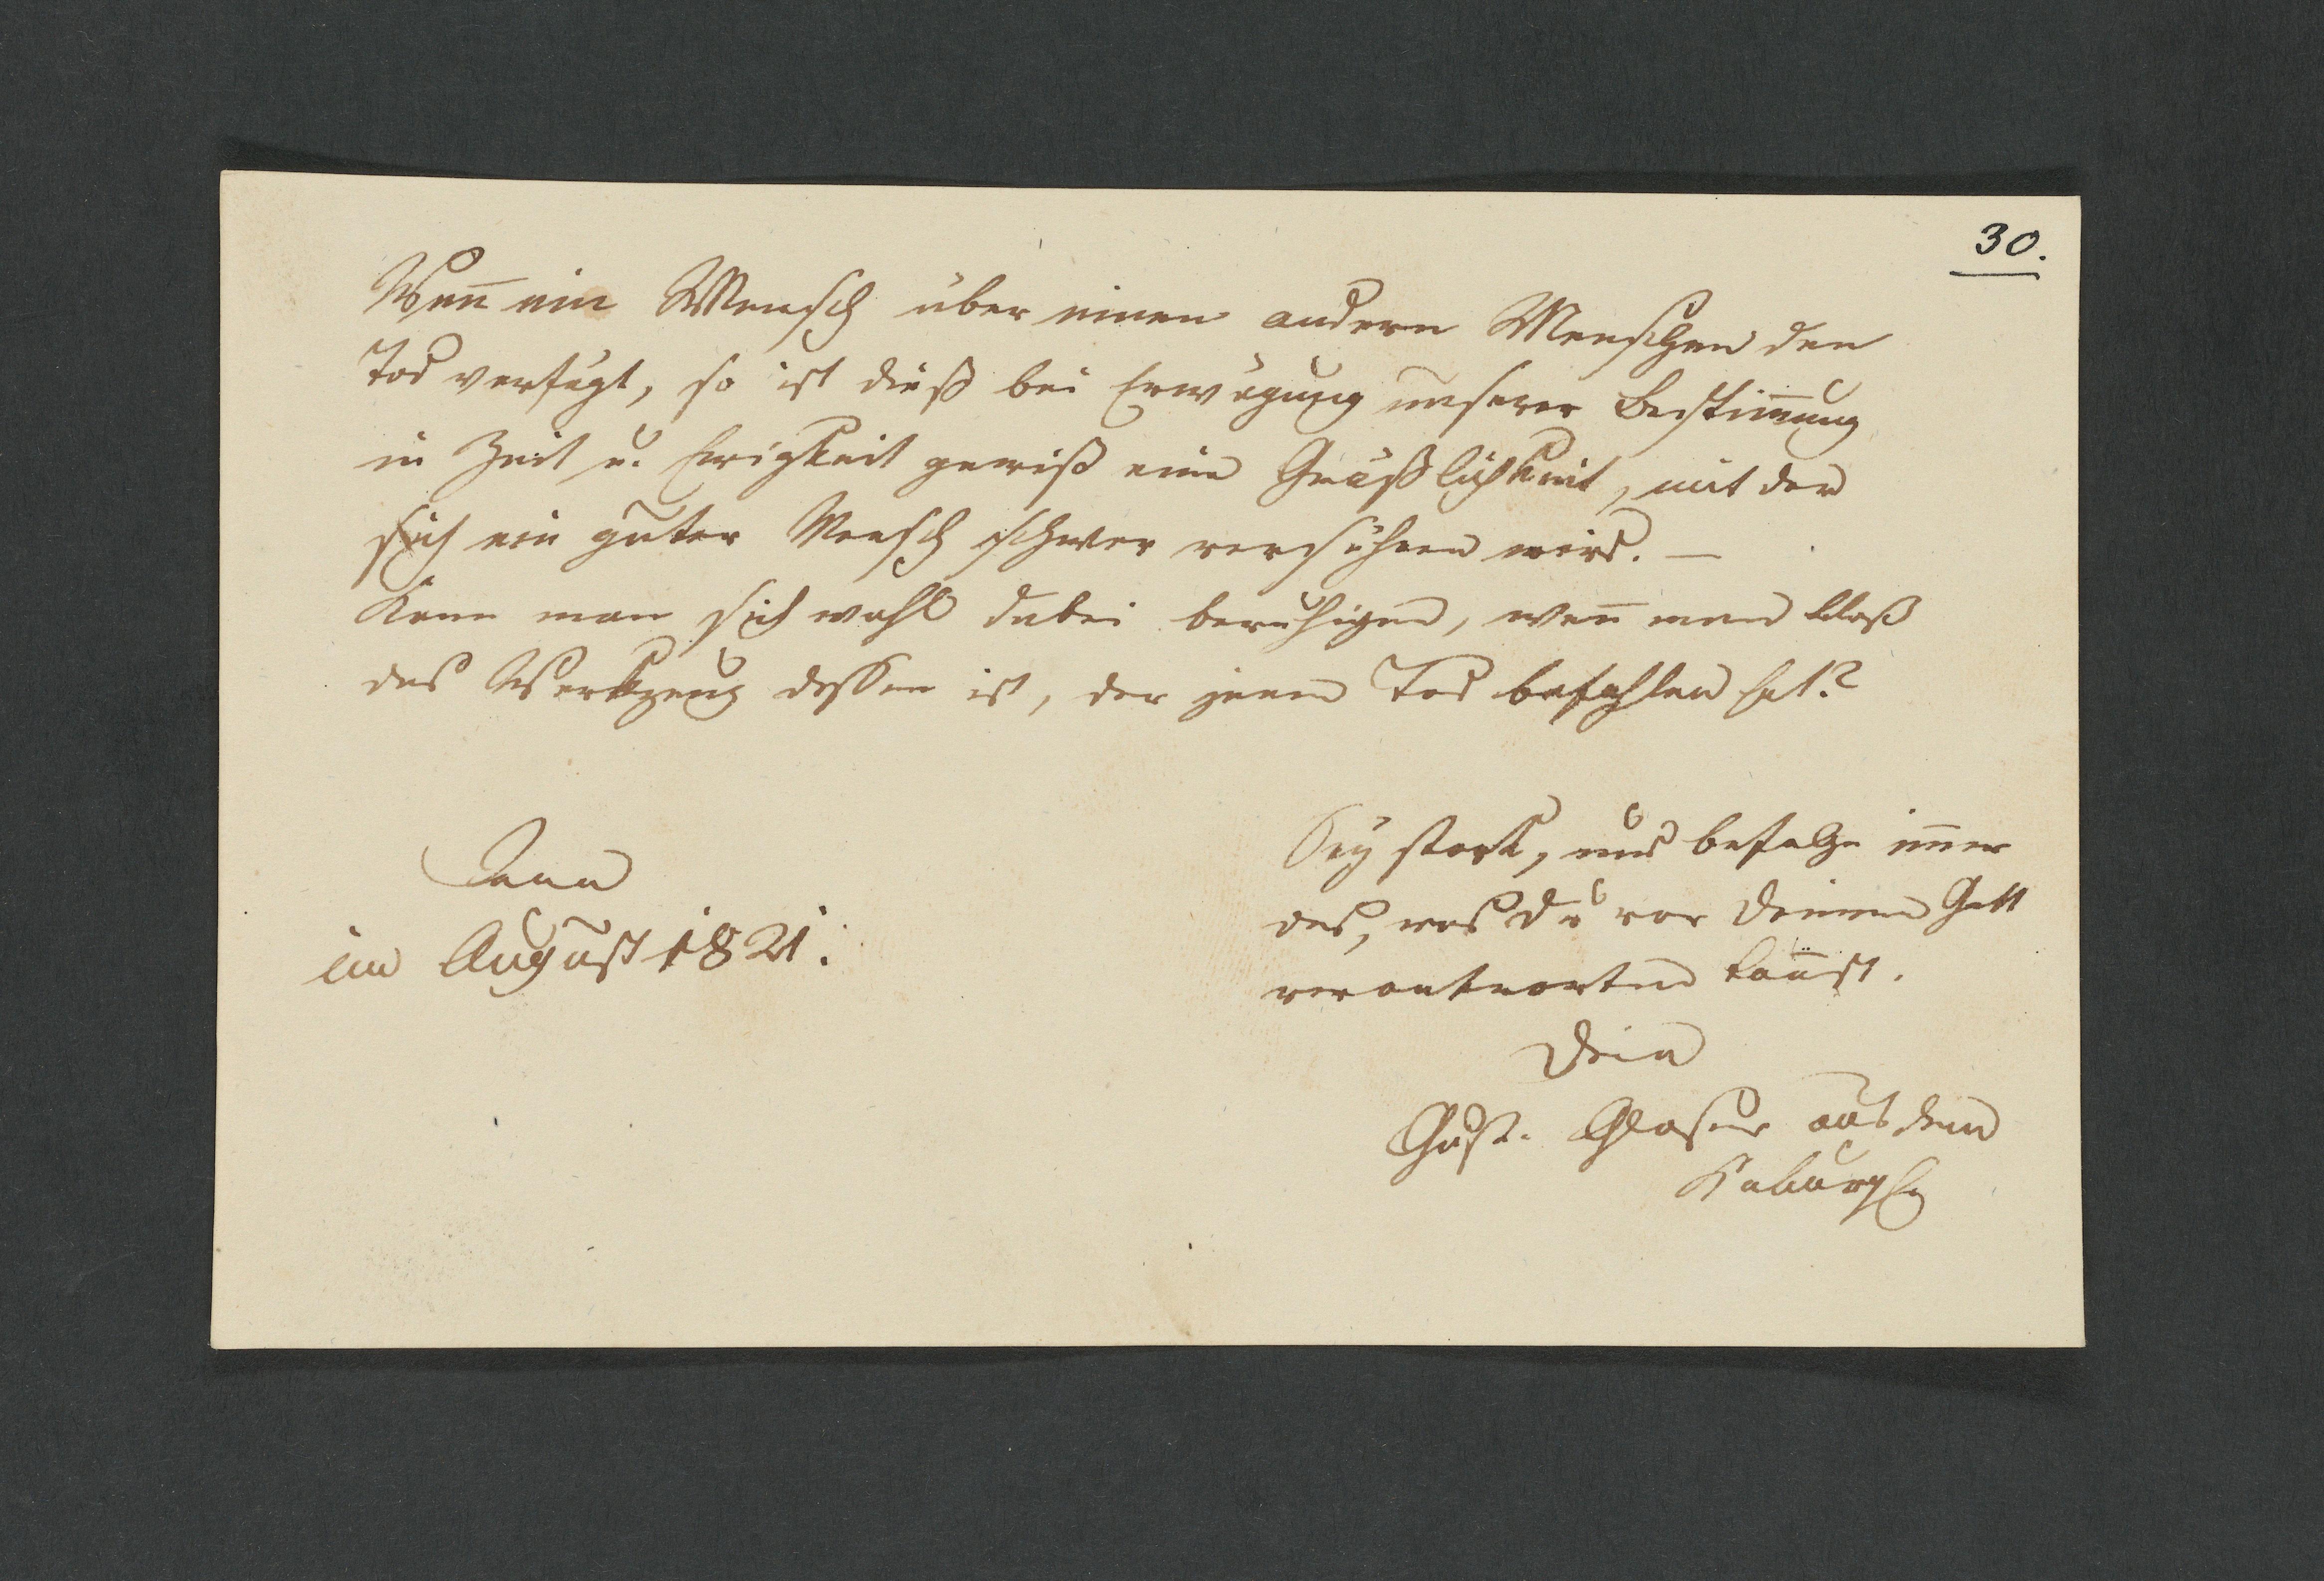 30.
Wen̄ ein Mensch über einen andern Menschen den
Tod verfügt, so ist dieß bei Erwägung unserer Bestim̄ung
in Zeit u. Ewigkeit gewiß eine Gräßlichkeit, mit der
sich ein guter Mensch schwer versöhnen wird. —
Kann man sich wohl dabei beruhigen, wen̄ man bloß
das Werkzeug dessen ist, der jenen Tod befohlen hat?
Jena
im August 1821.
Sey stark, und befolge im̄er
das, was du vor Deinem Gott
verantworten kan̄st.
Dein
Gust. Glaser aus dem
Koburgsch